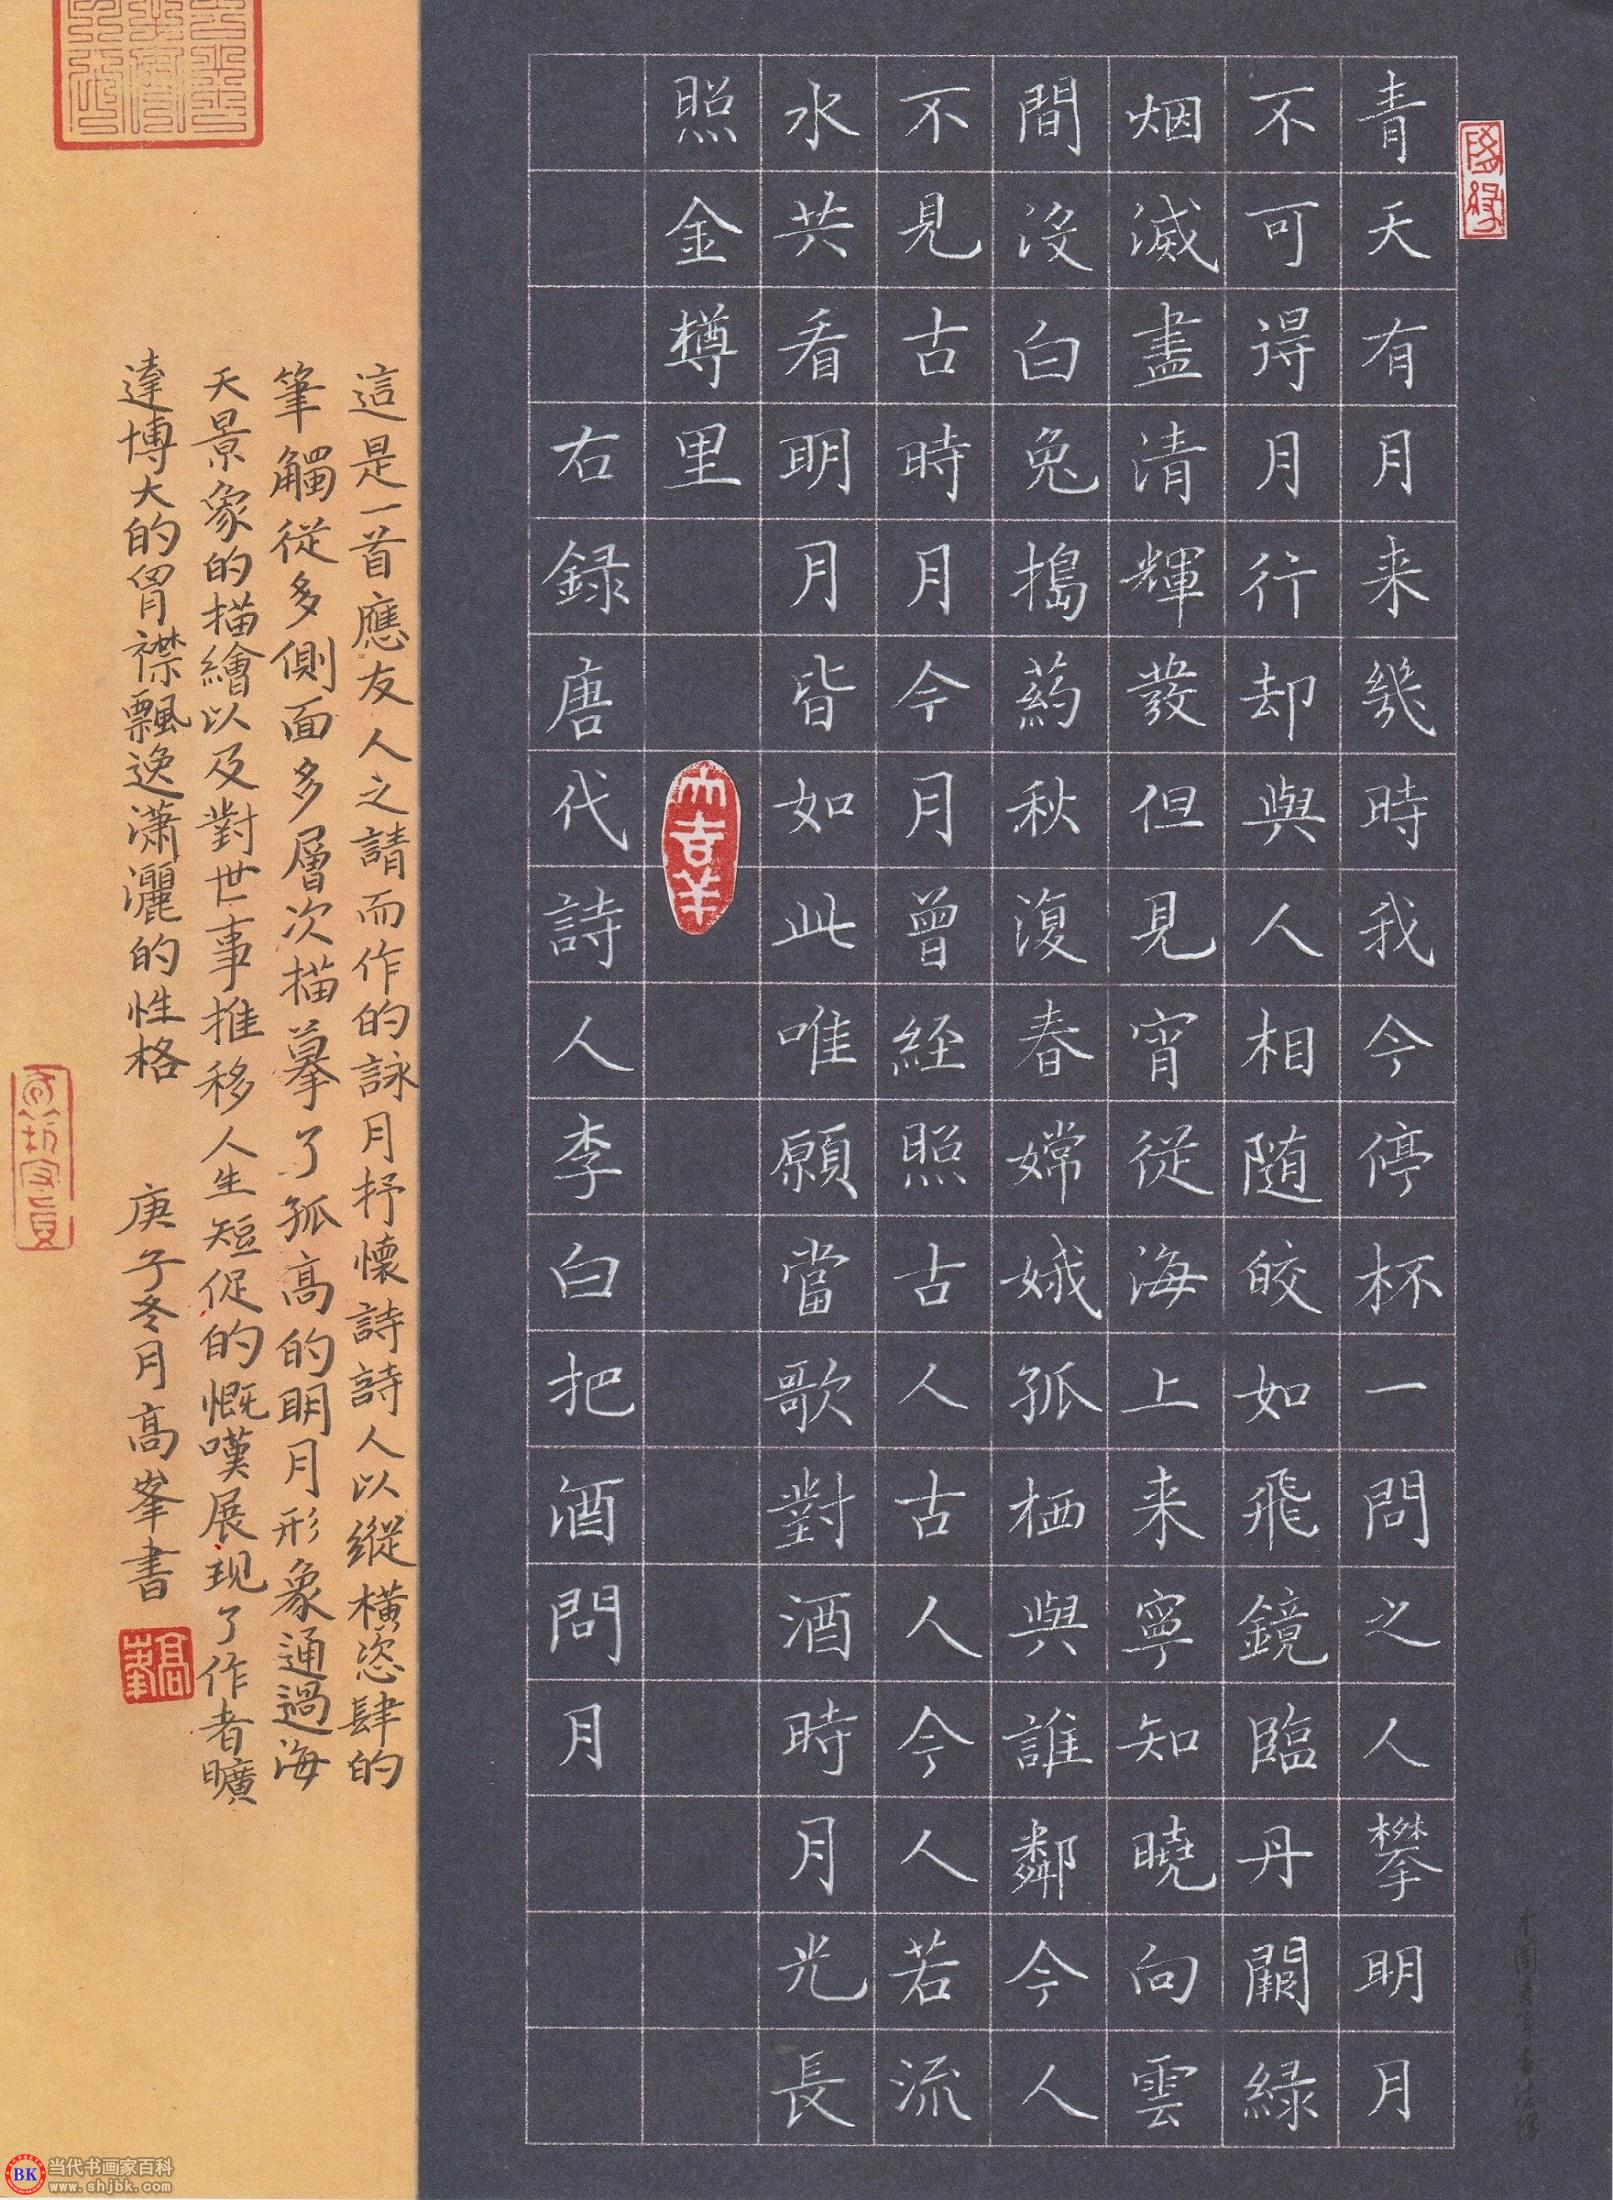 青天有月来幾時我今停杯一問之人攀明月
不可得月行却與人相随皎如飛鏡臨丹闕緑
烟滅盡清輝發但見宵從海上来寧知曉向雲
間没白兔搗药秋復春嫦娥孤栖與誰鄰今人
不見古時月今月曾経照古人古人今人若流
水共看明月皆如此唯願當歌對酒時月光長
照金樽里
大吉羊
右録唐代詩人李白把酒問月
這是一首應友人之請而作的詠月抒懷詩詩人以縱橫恣肆的
筆觸從多側面多層次描摹了孤高的明月形象通過海
天景象的描繪以及對世事推移人生短促的慨嘆展现了作者曠
達博大的胷襟飄逸潇灑的性格 庚子冬月高峯書
高峯
BK 当代书画家百科
www.shjbk.com